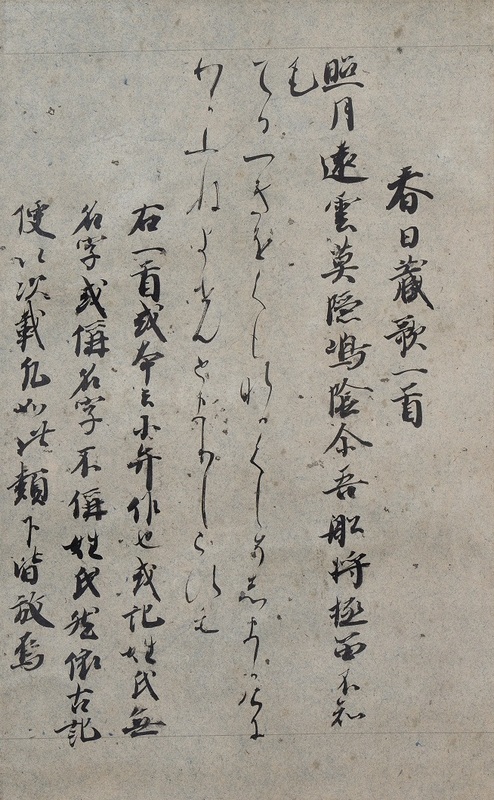 春日蔵歌一首
照月遠雲莫隠嶋陰尓吾船将極留不知
毛
てるつきをくもなかくしそしまかけに
わかふねよせんとまりしらすも
右一首或本云小弁作也或記姓氏無
名字或偁名字不偁姓氏然依古記
便以次載凡如此類下皆放焉